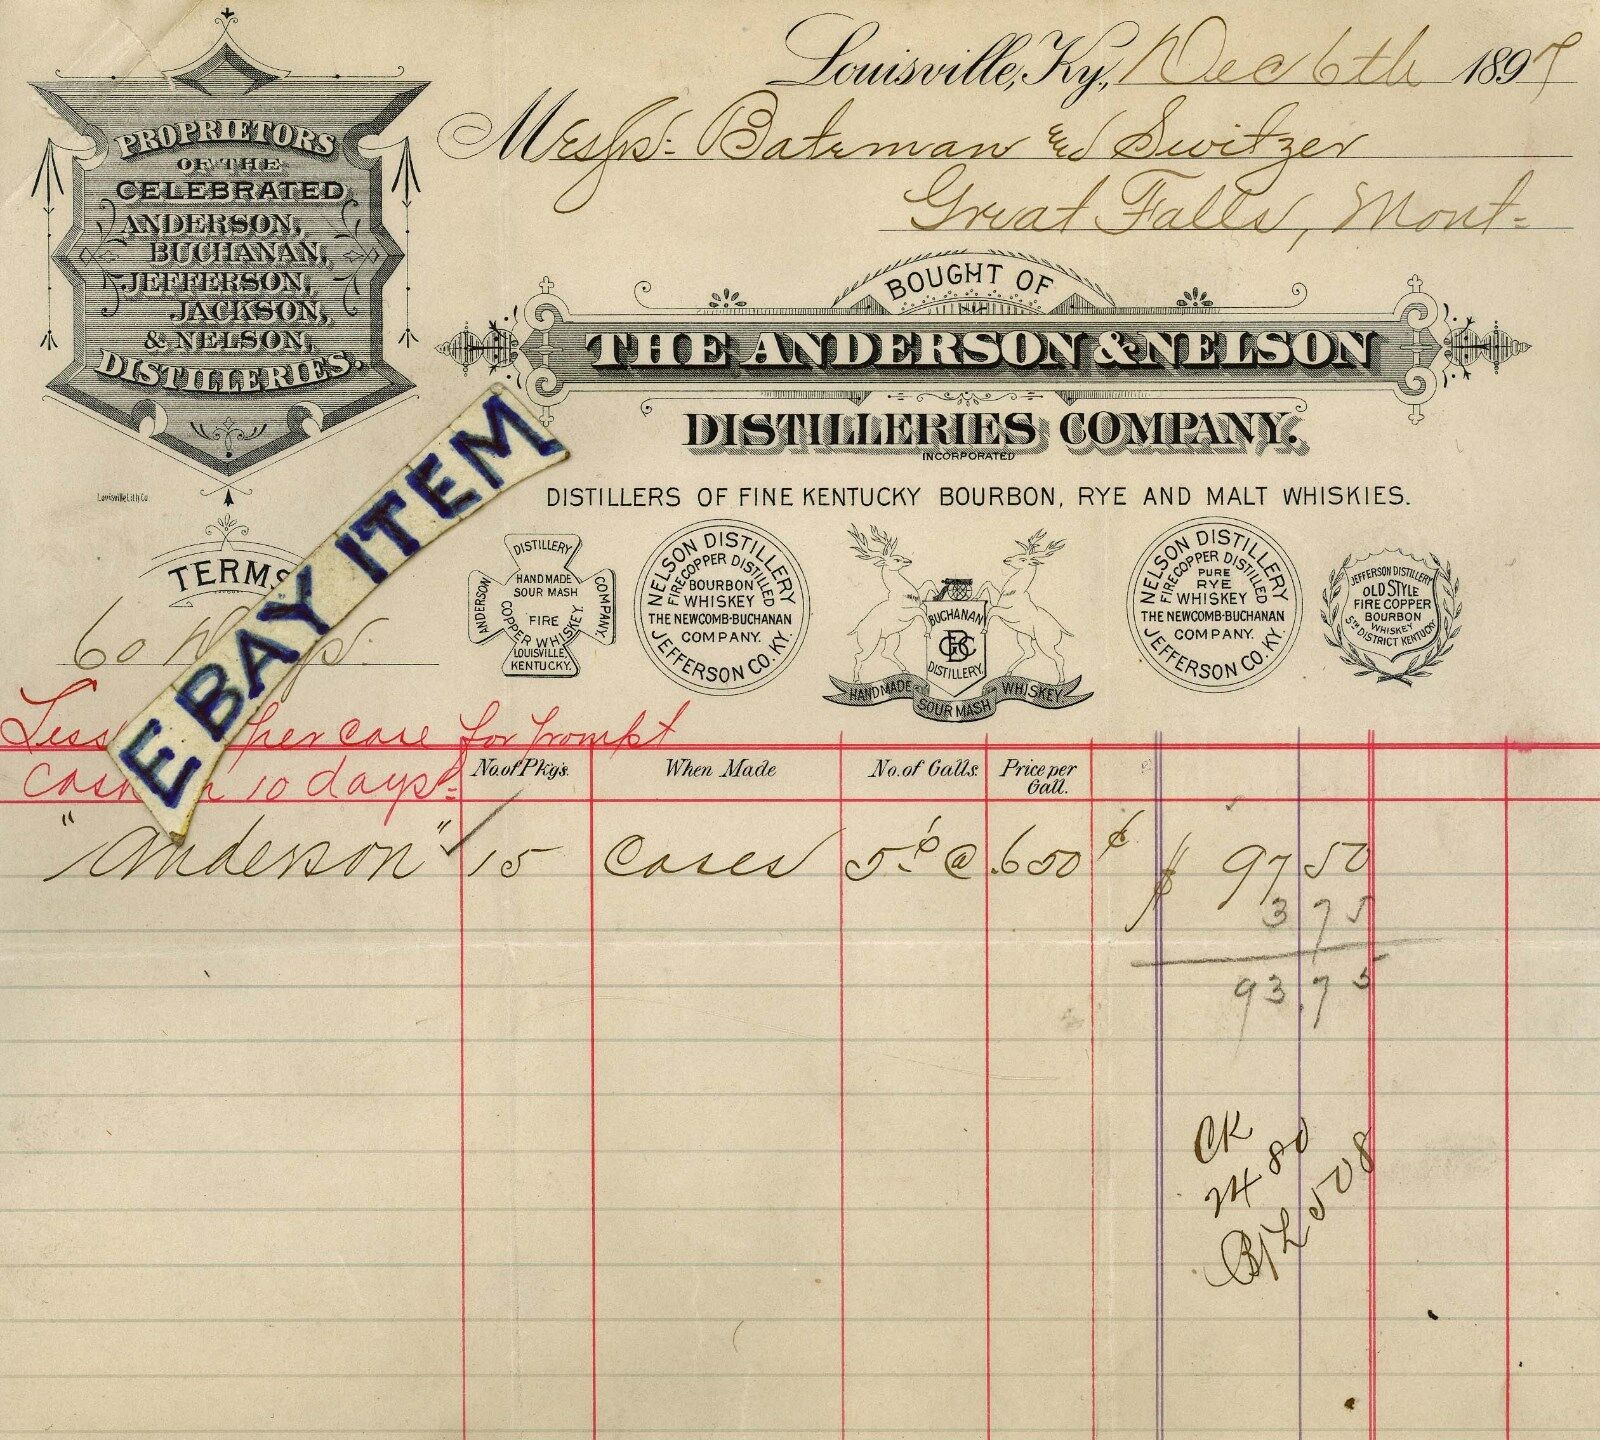 Louisville, Ky., Dec 6th 1897
Messrs. Bateman and Switzer
Great Falls, Mont-
PROPRIETORS
OF THE
CELEBRATED
ANDERSON,
BUCHANAN,
JEFFERSON,
JACKSON,
& NELSON,
DISTILLERIES.
Louisville Lith Co.
BOUGHT OF
THE ANDERSON & NELSON
DISTILLERIES COMPANY.
INCORPORATED
DISTILLERS OF FINE KENTUCKY BOURBON, RYE AND MALT WHISKIES.
TERMS
60
EBAY ITEM
DISTILLERY
ANDERSON
COMPANY.
HAND MADE
SOUR MASH
FIRE
COPPER WHISKEY
LOUISVILLE,
KENTUCKY.
NELSON DISTILLERY
FIRE COPPER DISTILLED
BOURBON
WHISKEY
THE NEWCOMB-BUCHANAN
COMPANY.
JEFFERSON CO. KY.
BUCHANAN
DISTILLERY.
HAND MADE
SOUR MASH
WHISKEY
NELSON DISTILLERY
FIRE COPPER DISTILLED
PURE
RYE
WHISKEY
THE NEWCOMB-BUCHANAN
COMPANY.
JEFFERSON CO. KY.
JEFFERSON DISTILLERY
OLD STYLE
FIRE COPPER
BOURBON
WHISKEY
5TH DISTRICT KENTUCKY
Less per case for prompt
cash 10 days-
No. of Pkgs. When Made No. of Galls. Price per Gall.
"Anderson" 15 Cases @ .650 ¢ $ 97 50
3 75
93.75
CK
2480